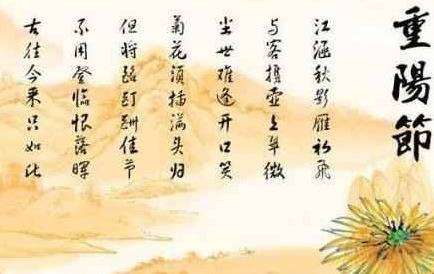 重陽節
江涵秋影雁初飛
与客携壶上翠微
尘世难逢开口笑
菊花须插满头归
但将酩酊酬佳节
不用登临恨落暉
古往今来只如此